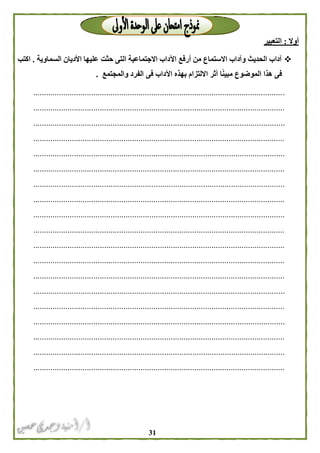 نموذج امتحان على الوحدة الأولى
أولا : التعبير
❖ آداب الحديث وآداب الاستماع من أرفع الآداب الاجتماعية التى حثت عليها الأديان السماوية . اكتب
فى هذا الموضوع مبينًا أثر الالتزام بهذه الآداب فى الفرد والمجتمع .
31